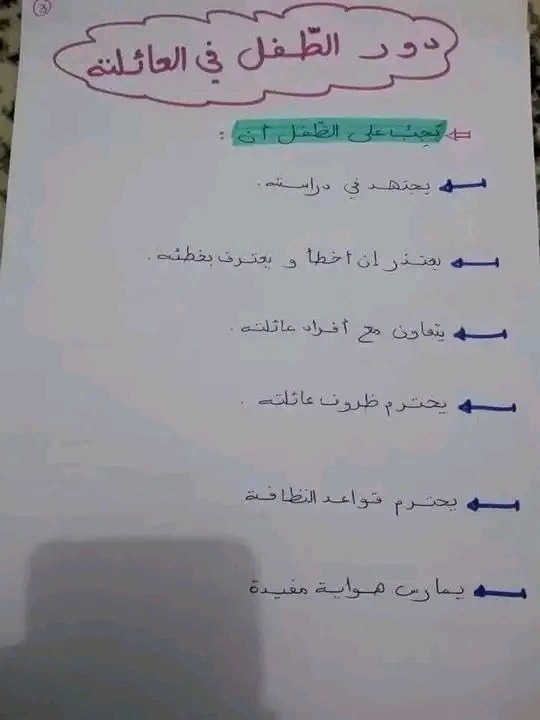 3
دور الطّفل في العائلة
يَجِبُ على الطّفل أن :
يجتهد في دراسته.
يعتذر إن أخطأ و يعترف بخطئه.
يتعاون مع أفراد عائلته.
يحترم ظروف عائلته.
يحترم قواعد النظافة
يمارس هواية مفيدة